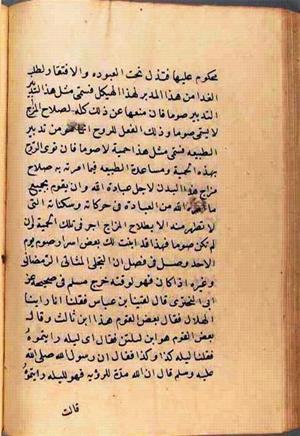 محكوم عليها فتدل تحت العبوده والافتقار لطلب
الغدا من هذا المدبر لهذا الهيكل فسمى مثل هذا التدبير
التدبير صوما فان منعها عن ذلك كله لصلاح المزاج
لا يسمى صوما وذلك الفعل للروح انما هو من تدبير
الطبيعه فسمى مثل هذا حمية لا صوما فان نوى الروح
بهذه الحمية ومساعدة الطبيعه فيما امرته به صلاح
مزاج هذا البدن لاجل عبادة الله وان يقوم بجميع
ما الله من العبادة في حركاته وسكناته التى
لا تظهر منه الا بصلاح المزاج اجر في تلك الحمية ان
لم تكن صوما فهذا قد ابنت لك بعض اسرار صوم يوم
الاحد وصل في فصل ان التجلي المثالى الرمضاني
وغيره اذا كان فهو لوقته خرج مسلم في صحيحه عن
ابى البخترى قال لقينا بن عباس فقلنا انا راينا
الهلال فقال بعض القوم هذا ابن ثالث وقال
بعض القوم هو ابن ليلتين فقال اى ليله رايتموه
فقلنا ليله كذا وكذا فقال ان رسول الله صلى الله
عليه وسلم قال ان الله مده للرؤيه فهو لليله رايتموه
قالت